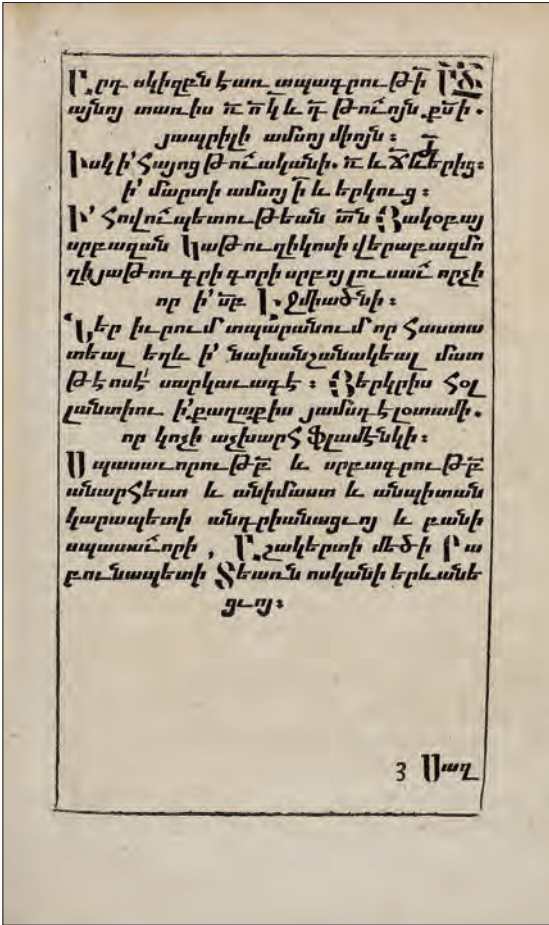 Արդ սկիզբն էառ տպագրութի
այնոյ տառիս
յապրիլի ամսոյ միոյն ։
Իսկ ի՛ Հայոց թուականի. և երից։
ի՛ մարտի ամսոյ ի և երկուց ։
Ի՛ Հովուապետութեան տն Յակօբայ
սրբազան կաթուղիկոսի վերաբազմօ
ղի յաթոռ գրիգորի սրբոյ լուսաւորչի
որ ի՛ սբ Էջմիածնի ։
Վեր իւրում տպարանում որ Հաստա
տեալ եղև ի՛ նախանշանակեալ մատ
թէոսէ սարկաւագէ ։ Յերկրիս Հօլ
լանտիու ի՛ քաղաքիս յամսդէլօտամի.
որ կոչի աշխարՀ Ֆլամէնկի։
Սպասաւորութբ և սրբագրութբ
անարՀեստ և անիմաստ և անպիտան
կարապետի անդրիանացւոյ և բանի
սպասաւորի , Աշակերտի մեծի Րա
բունապետի Տեառն ոսկանի երևանե
ցւոյ։
3 Սաղ